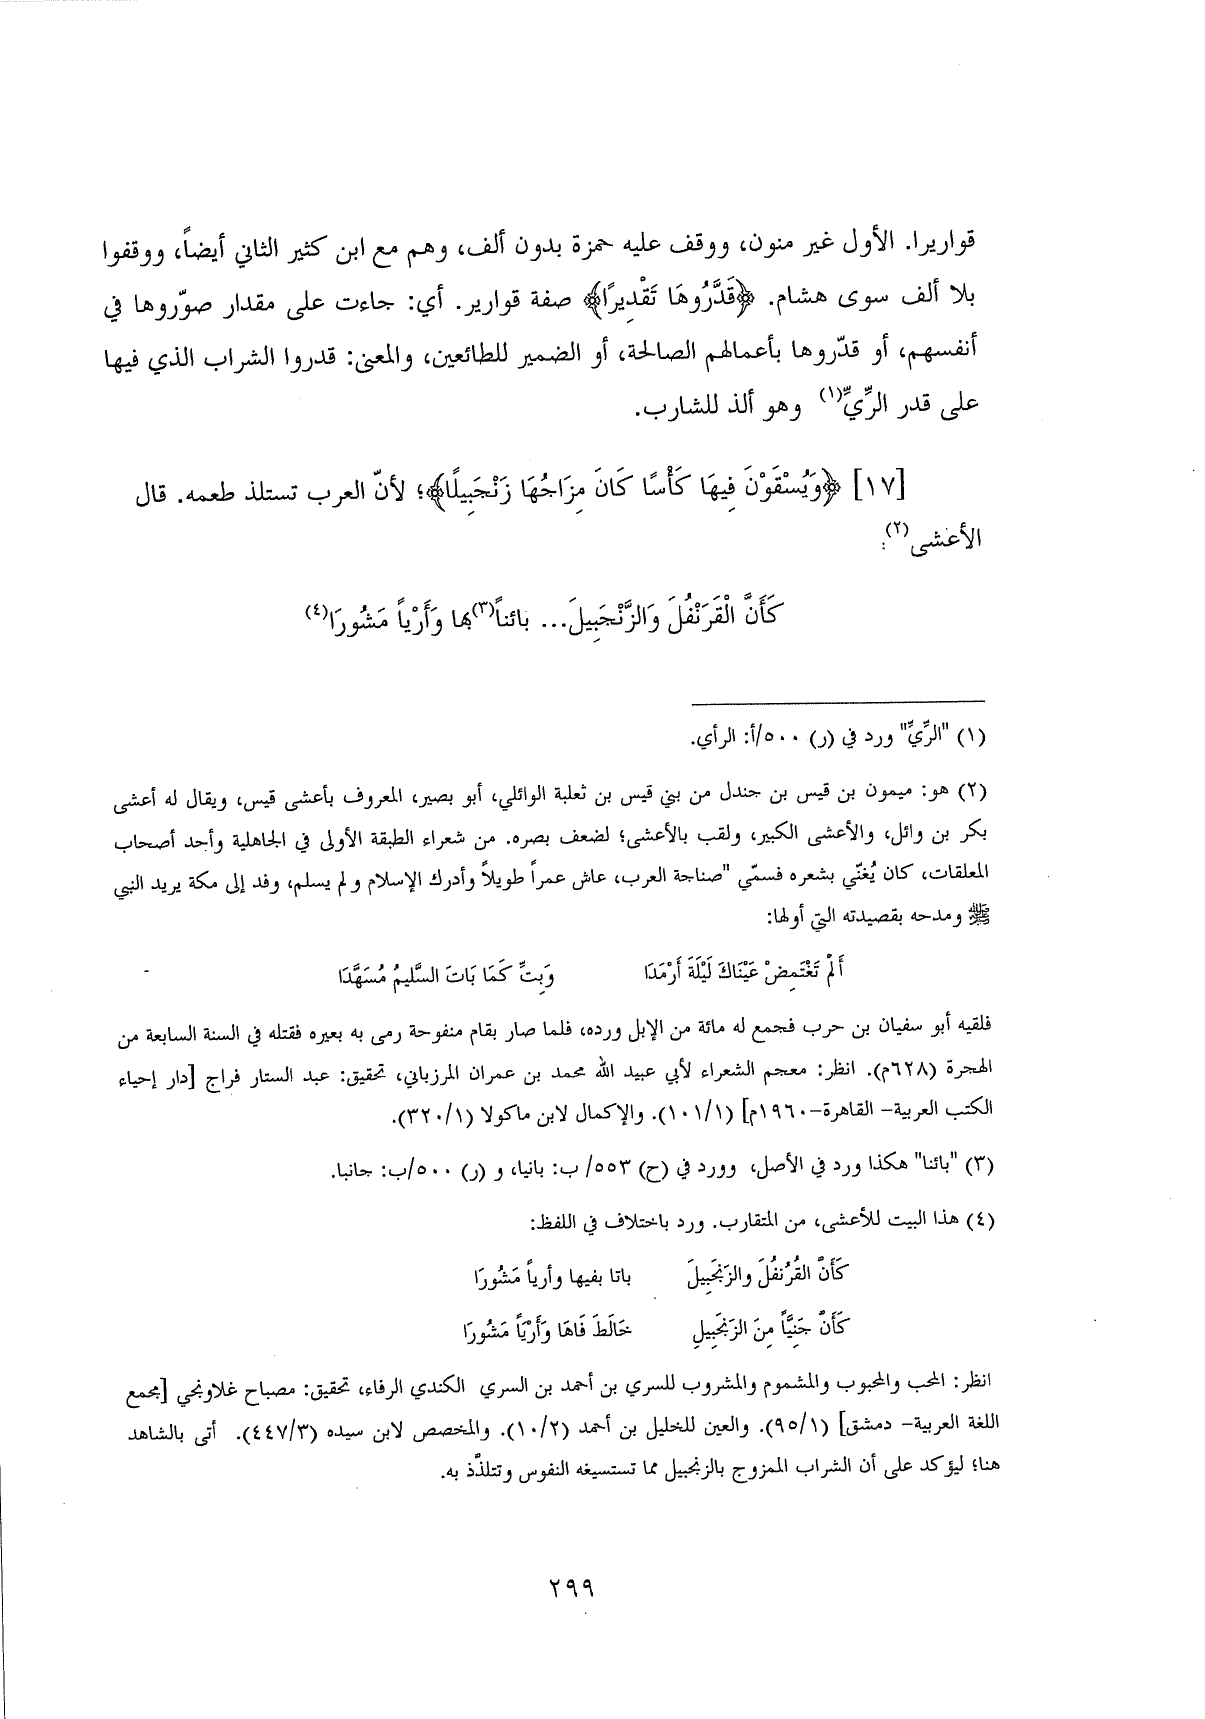 قواريرا. الأول غير منون، ووقف عليه حمزة بدون ألف، وهم مع ابن كثير الثاني أيضاً، ووقفوا
بلا ألف سوى هشام. ﴿قَدَّرُوهَا تَقْدِيرًا﴾ صفة قوارير. أي: جاءت على مقدار صوّروها في
أنفسهم، أو قدّروها بأعمالهم الصالحة، أو الضمير للطائعين، والمعنى: قدروا الشراب الذي فيها
على قدر الرِّيِّ(١) وهو ألذ للشارب.
[١٧] ﴿وَيُسْقَوْنَ فِيهَا كَأْسًا كَانَ مِزَاجُهَا زَنْجَبِيلًا﴾؛ لأنّ العرب تستلذ طعمه. قال
الأعشى(٢):
كَأَنَّ الْقَرَنْفُلَ وَالزَّنْجَبِيلَ... بائناً(٣)بها وَأَرْياً مَشُورَا(٤)
(١) "الرِّيِّ" ورد في (ر) ٥٠٠/أ: الرأي.
(٢) هو: ميمون بن قيس بن جندل من بني قيس بن ثعلبة الوائلي، أبو بصير، المعروف بأعشى قيس، ويقال له أعشى
بكر بن وائل، والأعشى الكبير، ولقب بالأعشى؛ لضعف بصره. من شعراء الطبقة الأولى في الجاهلية وأحد أصحاب
المعلقات، كان يُغنّي بشعره فسمّي "صناجة العرب، عاش عمراً طويلاً وأدرك الإسلام و لم يسلم، وفد إلى مكة يريد النبي
ﷺ ومدحه بقصيدته التي أولها:
أَلَمْ تَغْتَمِضْ عَيْنَاكَ لَيْلَةَ أَرْمَدَا وَبِتَّ كَمَا بَاتَ السَّلِيمُ مُسَهَّدَا
فلقيه أبو سفيان بن حرب فجمع له مائة من الإبل ورده، فلما صار بقام منفوحة رمى به بعيره فقتله في السنة السابعة من
الهجرة (٦٢٨م). انظر: معجم الشعراء لأبي عبيد الله محمد بن عمران المرزباني، تحقيق: عبد الستار فراج [دار إحياء
الكتب العربية- القاهرة-١٩٦٠م] (١٠١/١). والإكمال لابن ماكولا (٣٢٠/١).
(٣) "بائنا" هكذا ورد في الأصل، وورد في (ح) ٥٥٣/ ب: بانيا، و (ر) ٥٠٠/ب: جانبا.
(٤) هذا البيت للأعشى، من المتقارب. ورد باختلاف في اللفظ:
كَأَنَّ القُرُنفُلَ والزَنجَبِيلَ باتا بفيها وأرياً مَشُورَا
كَأَنَّ جَنِيَّاً مِنَ الزَنجَبِيلِ خَالَطَ فَاهَا وَأَرْيَاً مَشُورَا
انظر: المحب والمحبوب والمشموم والمشروب للسري بن أحمد بن السري الكندي الرفاء، تحقيق: مصباح غلاونجي [مجمع
اللغة العربية- دمشق] (٩٥/١). والعين للخليل بن أحمد (١٠/٢). والمخصص لابن سيده (٤٤٧/٣). أتى بالشاهد
هنا؛ ليؤكد على أن الشراب الممزوج بالزنجبيل مما تستسيغه النفوس وتتلذّذ به.
٢٩٩